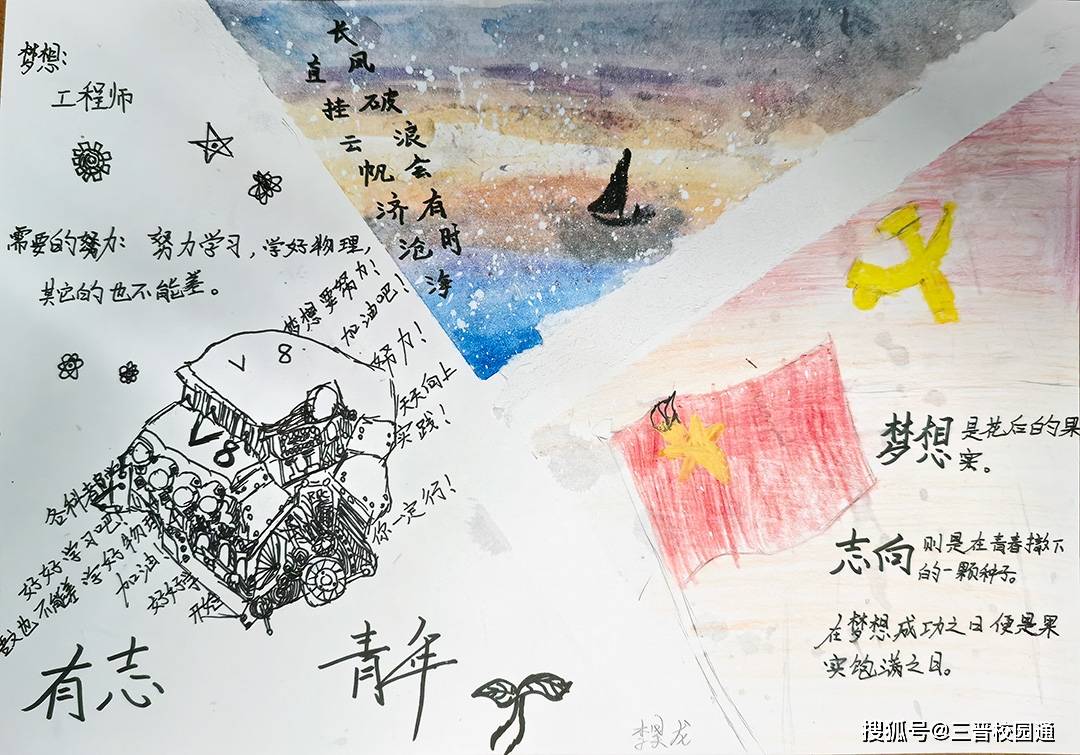 梦想:
工程师
需要的努力: 努力学习,学好物理,
其它的也不能差。
长风破浪会有时
直挂云帆济沧海
梦想要努力!
加油吧!
努力!
天天向上
实践!
你一定行!
V 8
V8
各科都
好好学习吧!
也不能差 学好物理
加油
好好学
开始
有志 青年
梦想是花后的果
实。
志向则是在青春撒下
的一颗种子。
在梦想成功之日便是果
实饱满之日。
李昊龙
搜狐号@三晋校园通